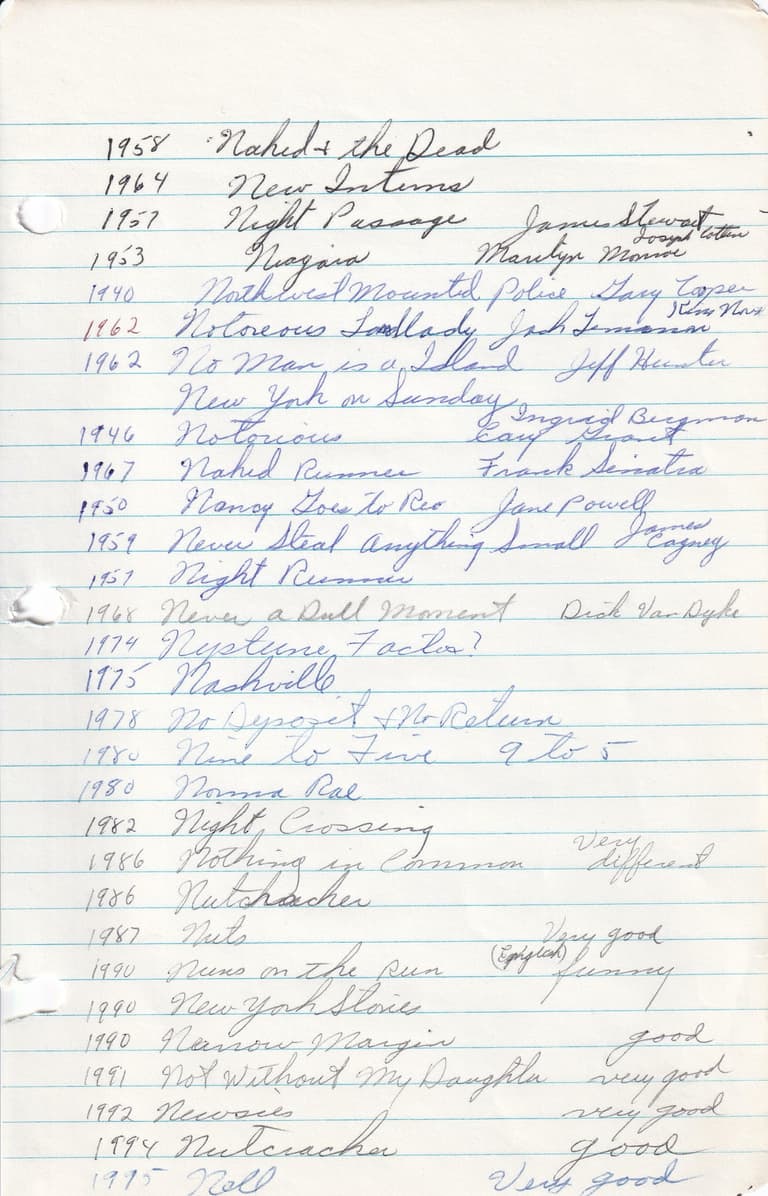 1958 Naked + the Dead
1964 New Interns
1957 Night Passage James Stewart
Joseph Cotten
1953 Niagara Marilyn Monroe
1940 Northwest Mounted Police Gary Cooper
Kim Nov
1962 Notoreous Landlady Jack Lemmon
1962 No Man is a Island Jeff Hunter
New York on Sunday
Ingrid Bergman
1946 Notorious Cary Grant
1967 Naked Runner Frank Sinatra
1950 Nancy Goes to Rio Jane Powell
1959 Never Steal Anything Small James Cagney
1957 Night Runner
1968 Never a Dull Moment Dick Van Dyke
1974 Neptune Factor?
1975 Nashville
1978 No Deposit + No Return
1980 Nine to Five 9 to 5
1980 Norma Rae
1982 Night Crossing
1986 Nothing in Common Very different
1986 Nutcracker
1987 Nuts Very good
1990 Nuns on the Run (English) funny
1990 New York Stories
1990 Narrow Margin good
1991 Not Without My Daughter very good
1992 Newsies very good
1994 Nutcracker good
1995 Nell Very good